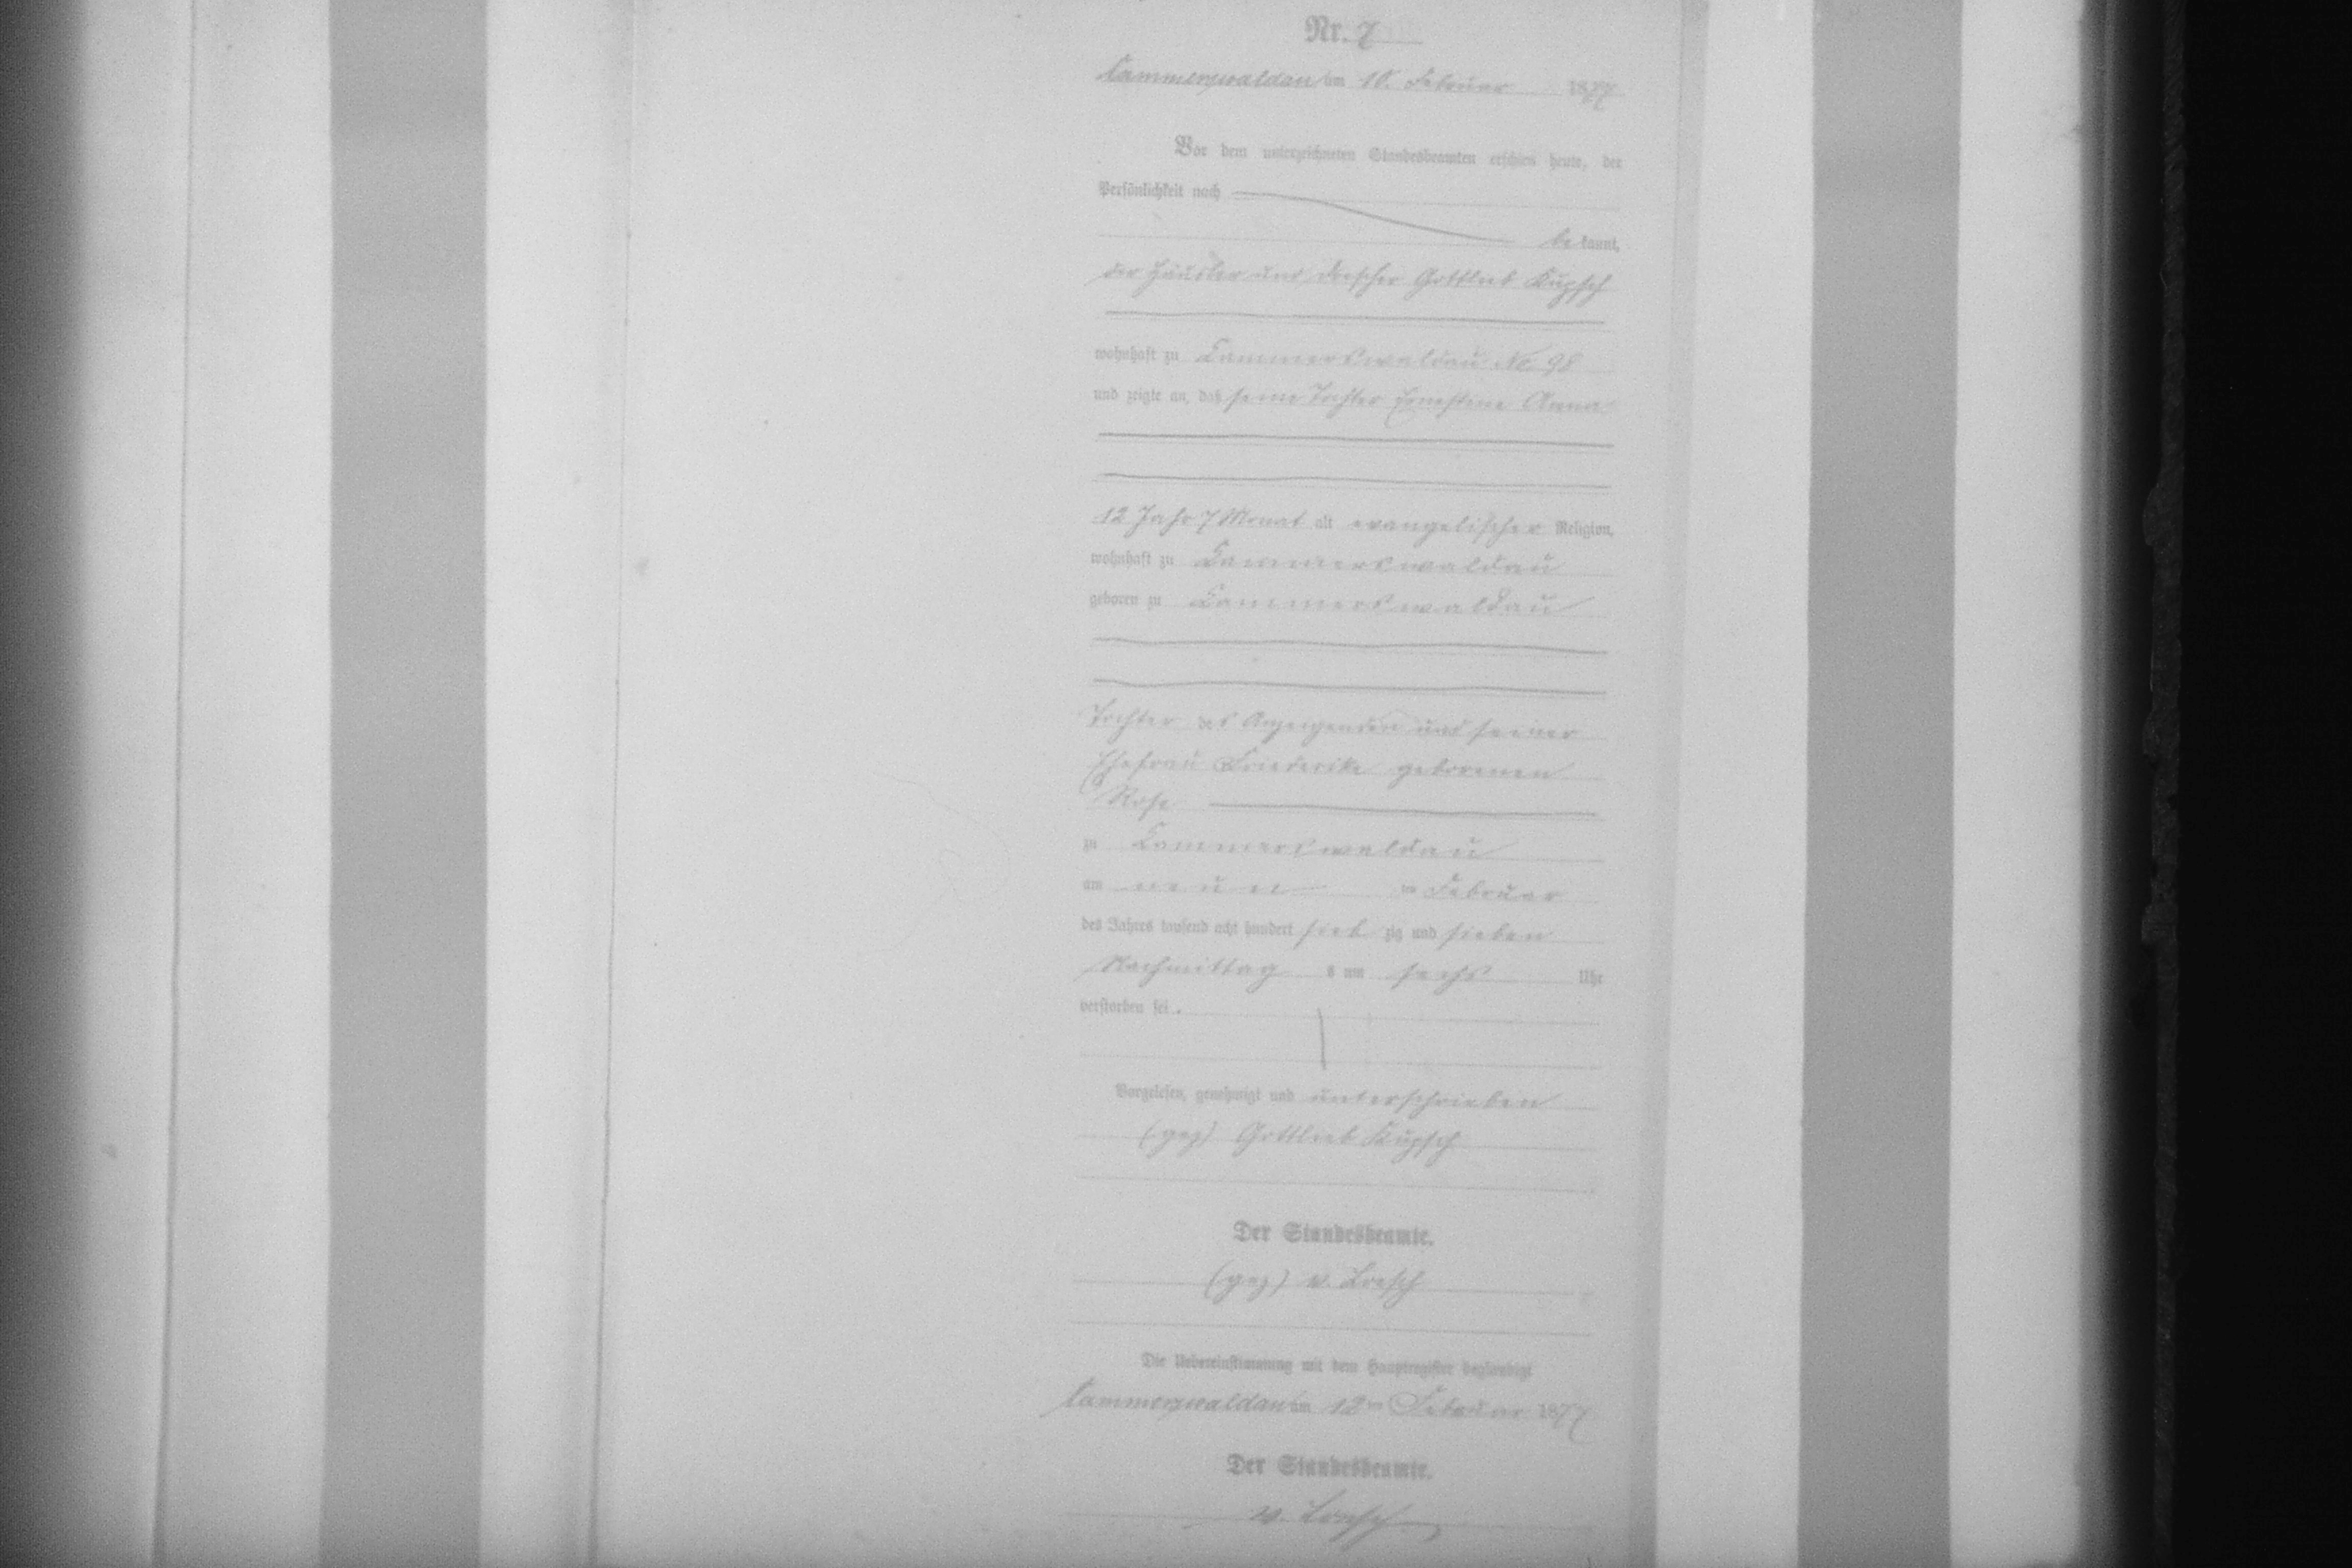 Nr. 7
Cammerswaldau am 10. Februar 1877
Vor dem unterzeichneten Standesbeamten erschien heute, der
Persönlichkeit nach
bekannt,
der Häusler und Drescher Gottlieb Kupsch
wohnhaft zu Cammerswaldau No. 98
und zeigte an, daß seine Tochter Ernestine Anna
12 Jahr 7 Monat alt evangelischer Religion,
wohnhaft zu Cammerswaldau
geboren zu Cammerswaldau
Tochter des Anzeigenden und seiner
Ehefrau Friederike geborenen
Rose
zu Cammerswaldau
am neunten Februar
des Jahres tausend acht hundert siebzig und sieben
Nachmittags um sechs Uhr
verstorben sei.
Vorgelesen, genehmigt und unterschrieben
(gez) Gottlieb Kupsch
Der Standesbeamte.
(gez) v.
Die Uebereinstimmung mit dem Hauptregister beglaubigt
Cammerswaldau am 12ten Februar 1877
Der Standesbeamte.
v.